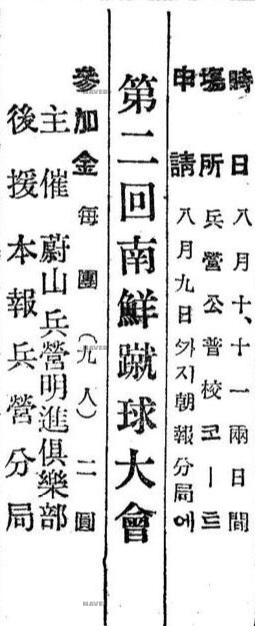 時日 八月十、十一兩日間
塲所 兵營公普校코ー트
申請 八月九日ᄭᅡ지朝報分局에
第二回南鮮蹴球大會
參加金 每團(九人)二圓
主催 蔚山兵營明進俱樂部
後援 本報兵營分局
NAVER
NAVER
NAVER